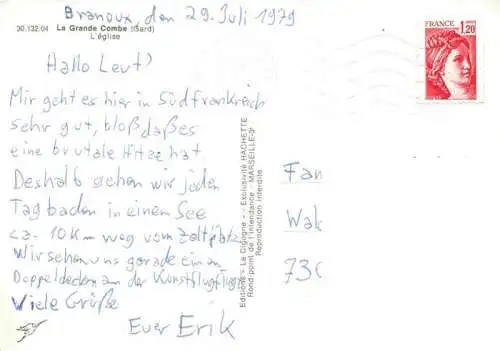 Branoux, den 29. Juli 1979
30.132.04 La Grande Combe (Gard)
L'église
FRANCE
1,20
Hallo Leut'
Mir geht es hier in Südfrankreich
sehr gut, bloß daß es
eine brutale Hitze hat
Deshalb gehen wir jeden
Tag baden in einem See
ca. 10 Km weg vom Zeltplatz
Wir sehen uns gerade einen
Doppeldecker an der Kunstflug
Viele Grüße
Euer Erik
Editions « La Cigogne » - Exclusivité HACHETTE
Rond-point de l'Intendance - MARSEILLE-
Reproduction interdite
Fan
Wak
73